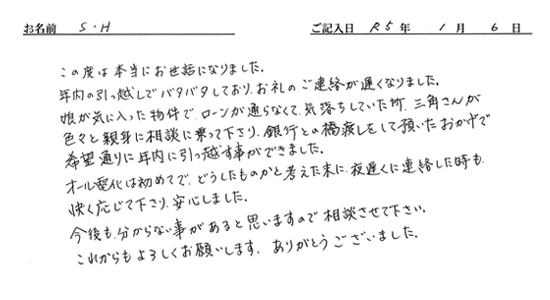 お名前 S・H ご記入日 R5年 1月 6日
この度は本当にお世話になりました。
年内の引っ越しでバタバタしており、お礼のご連絡が遅くなりました。
娘が気に入った物件で、ローンが通らなくて、気落ちしていた所、三角さんが
色々と親身に相談に乗って下さり、銀行との橋渡しをして頂いたおかげで
希望通りに年内に引っ越す事ができました。
オール電化は初めてで、どうしたものかと考えた末に、夜遅くに連絡した時も、
快く応じて下さり、安心しました。
今後も、分からない事があると思いますので相談させて下さい。
これからもよろしくお願いします。ありがとうございました。